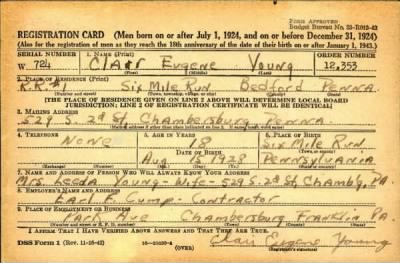 FORM APPROVED
REGISTRATION CARD (Men born on or after July 1, 1924, and on or before December 31, 1924)
(Also for the registration of men as they reach the 18th anniversary of the date of their birth on or after January 1, 1943.)
SERIAL NUMBER 1. NAME (Print) ORDER NUMBER
W. 724 Clair Eugene Young 12,353
2. PLACE OF RESIDENCE (Print)
R.R. Six Mile Run Bedford Penna.
(THE PLACE OF RESIDENCE GIVEN ON LINE 2 ABOVE WILL DETERMINE LOCAL BOARD
JURISDICTION; LINE 2 OF REGISTRATION CERTIFICATE WILL BE IDENTICAL)
3. MAILING ADDRESS
529 S. 2nd St. Chambersburg Penna
4. TELEPHONE 5. AGE IN YEARS 6. PLACE OF BIRTH
None 18 Six Mile Run
DATE OF BIRTH
Aug. 15 1928 Pennsylvania
7. NAME AND ADDRESS OF PERSON WHO WILL ALWAYS KNOW YOUR ADDRESS
Mrs. Leeda Young - Wife - 529 S. 2d St, Chamb'g, Pa.
8. EMPLOYER'S NAME AND ADDRESS
Earl F. Cump - Contractor
9. PLACE OF EMPLOYMENT OR BUSINESS
Park Ave Chambersburg Franklin Pa.
I AFFIRM THAT I HAVE VERIFIED ABOVE ANSWERS AND THAT THEY ARE TRUE.
DSS Form 1 (Rev. 11-16-42) (OVER) Clair Eugene Young